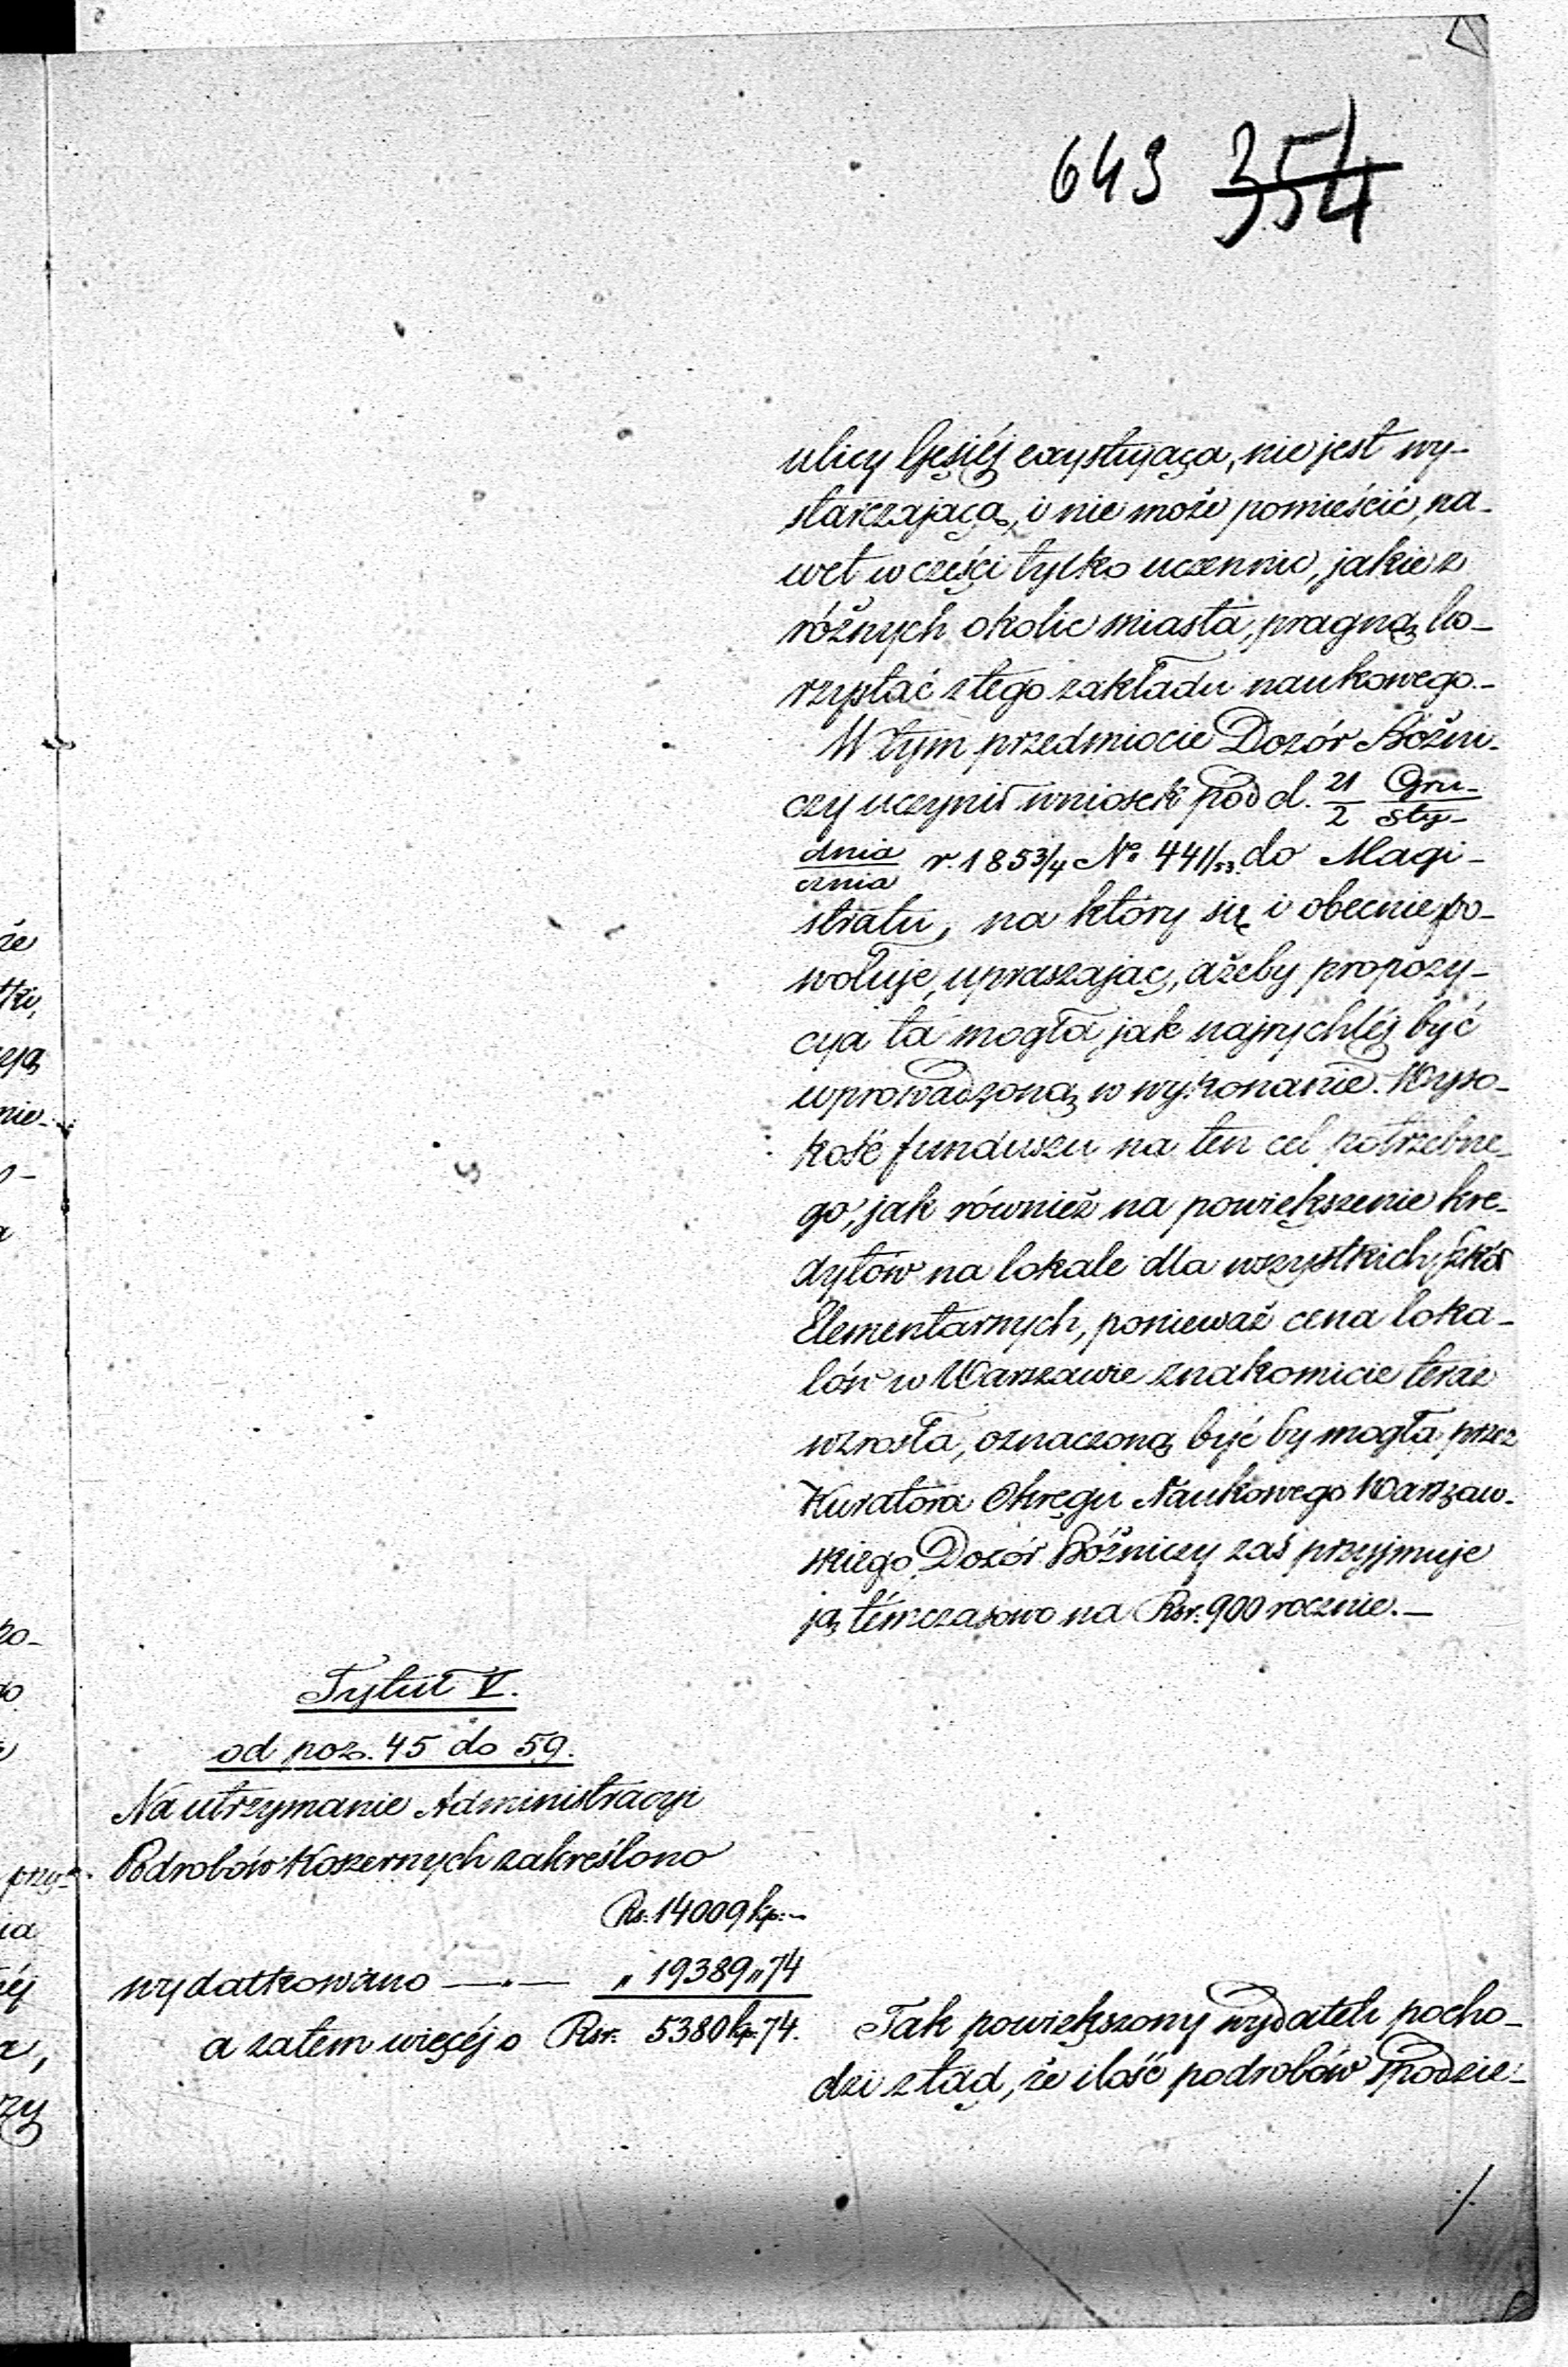 643 354
ulicy Gęsiéj exystująca, nie jest wy-
starczającą, i nie może pomieścić, na-
wet w części tylko uczennic, jakie z
różnych okolic miasta, pragną ko-
rzystać z tego zakładu naukowego.-
W tym przedmiocie Dozór Bóżni-
czy uczynił wniosek pod d. 21/2 Gru-/Sty-
dnia/cznia r. 1853/4 No 441/53. do Magi-
stratu, na który się i obecnie po-
wołuje, upraszając, ażeby propozy-
cya ta mogła jak najrychléj być
wprowadzoną w wykonanie. Wyso-
kość funduszu na ten cel potrzebne-
go, jak również na powiększenie kre-
dytów na lokale dla wszystkich szkół
Elementarnych, ponieważ cena loka-
lów w Warszawie znakomicie teraz
wzrosła, oznaczoną być by mogła przez
Kuratora Okręgu Naukowego Warszaw-
skiego, Dozór Bóżniczy zaś przyjmuje
ją témczasowo na Rsr. 900 rocznie.-
Tytuł V.
od poz. 45 do 59.
Na utrzymanie Administracyi
Podrobów Koszernych zakreślono
Rs: 14009 kp: -
wydatkowano — " — " 19389 " 74
a zatem więcéj o Rsr. 5380 kp. 74.
Tak powiększony wydatek pocho-
dzi ztąd, że ilość podrobów spodzie-
./.